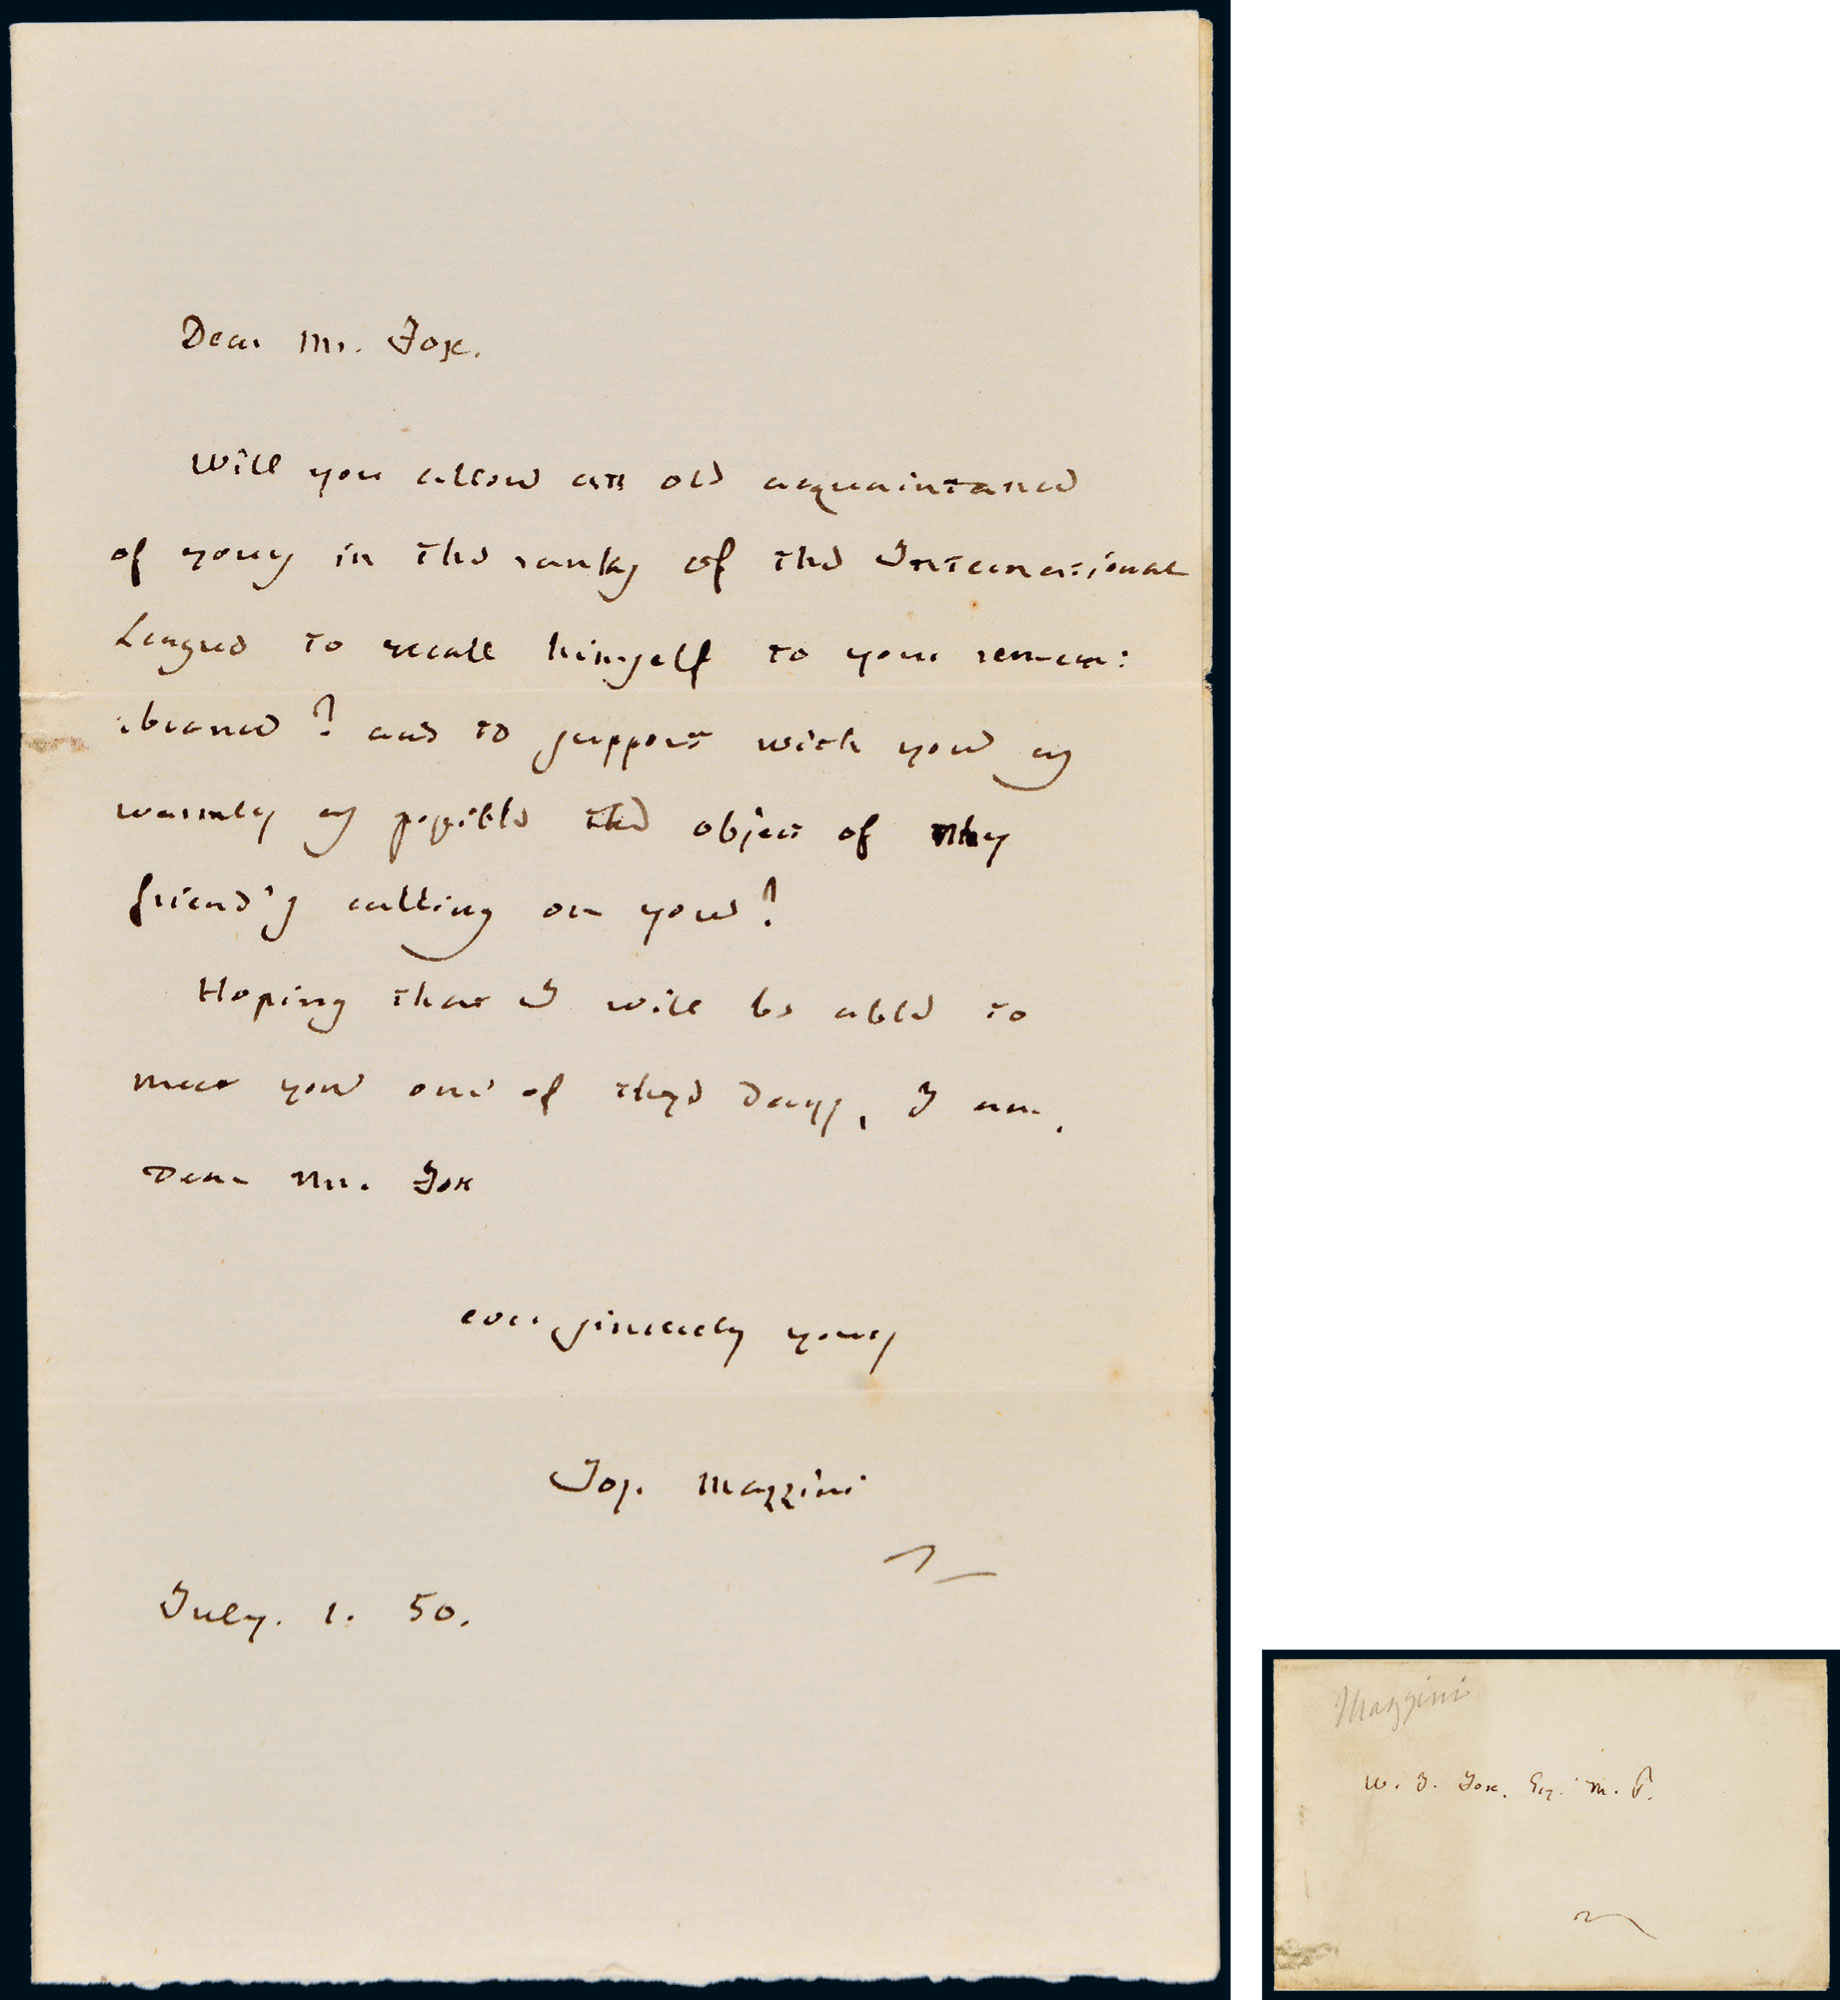 Dear Mr. Fox.
Will you allow an old acquaintance
of yours in the ranks of the International
League to recall himself to your remem:
:brance? and to support with you as
warmly as possible the object of my
friend's calling on you?
Hoping that I will be able to
meet you one of these days, I am,
Dear Mr. Fox
ever sincerely yours
Jos. Mazzini
July. 1. 50.
Mazzini
W. J. Fox. Esq. M. P.